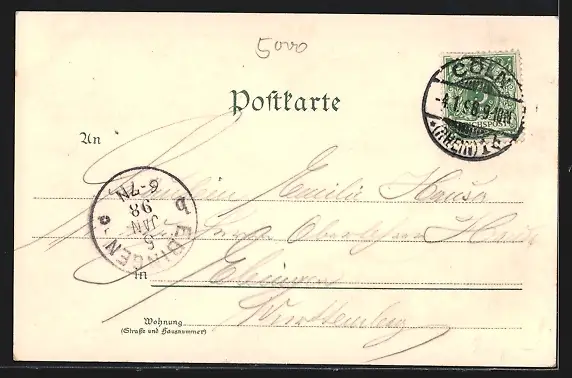 5000
Postkarte
CÖLN
(RHEIN) 1
REICHSPOST
An
Fräulein Emilie Hauser
Oberlehrer
in Ebingen
Württemberg
EBINGEN
5
JAN
98
6-7N
Wohnung
(Straße und Hausnummer)